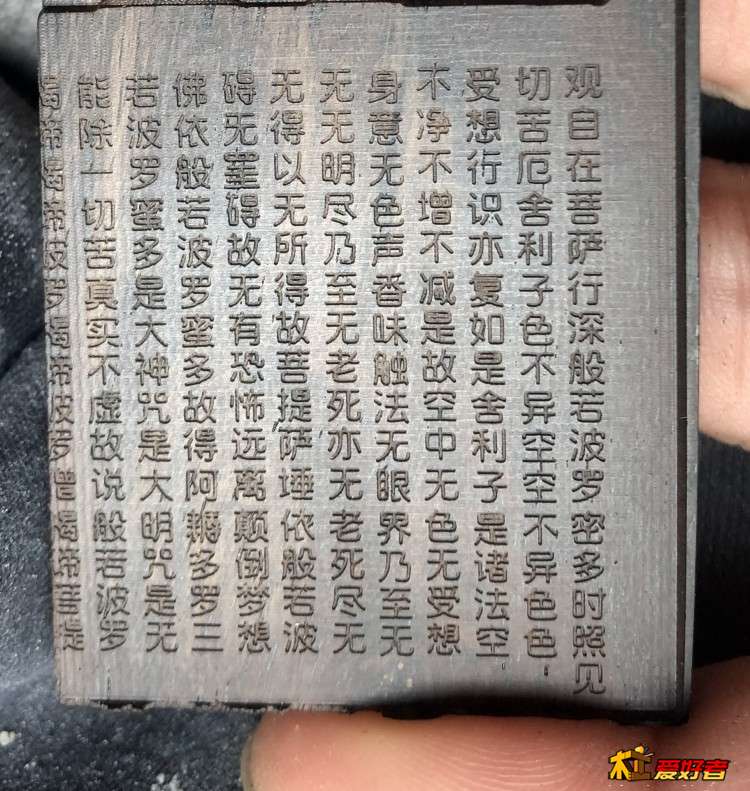 观自在菩萨行深般若波罗密多时照见
切苦厄舍利子色不异空空不异色色
受想行识亦复如是舍利子是诸法空
不净不增不减是故空中无色无受想
身意无色声香味触法无眼界乃至无
无无明尽乃至无老死亦无老死尽无
无得以无所得故菩提萨埵依般若波
碍无罣碍故无有恐怖远离颠倒梦想
佛依般若波罗蜜多故得阿耨多罗三
若波罗蜜多是大神咒是大明咒是无
能除一切苦真实不虚故说般若波罗
揭谛揭谛罗揭谛波罗僧揭谛菩提
木工爱好者